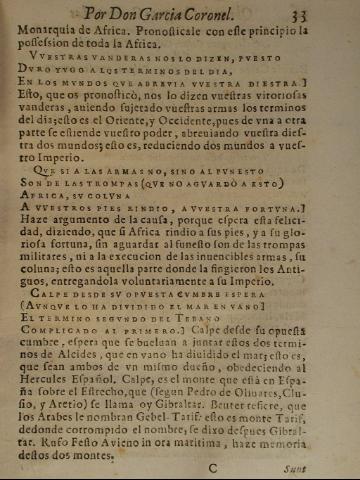 Por Don Garcia Coronel. 33
Monarquia de Africa. Pronosticale con este principio la
possession de toda la Africa.
VVESTRAS VANDERAS NOS LO DIZEN, PVESTO
DVRO YVGO A LOS TERMINOS DEL DIA,
EN LOS MVNDOS QVE ABREVIA VVESTRA DIESTRA.]
Esto, que os pronosticò, nos lo dizen vuestras vitoriosas
vanderas, auiendo sujetado vuestras armas los terminos
del dia; esto es el Oriente, y Occidente, pues de vna a otra
parte se estiende vuestro poder, abreuiando vuestra dies-
tra dos mundos; esto es, reduciendo dos mundos a vues-
tro Imperio.
QVE SI A LAS ARMAS NO, SINO AL FVNESTO
SON DE LAS TROMPAS (QVE NO AGVARDÒ A ESTO)
AFRICA, SV COLVNA
A VVESTROS PIES RINDIO, A VVESTRA FORTVNA.]
Haze argumento de la causa, porque espera esta felici-
dad, diziendo, que si Africa rindio a sus pies, y a su glo-
riosa fortuna, sin aguardar al funesto son de las trompas
militares, ni a la execucion de las inuencibles armas, su
coluna; esto es aquella parte donde la fingieron los Anti-
guos, entregandola voluntariamente a su Imperio.
CALPE DESDE SV OPVESTA CVMBRE ESPERA
(AVNQVE LO HA DIVIDIDO EL MAR EN VANO)
EL TERMINO SEGVNDO DEL TEBANO
COMPLICADO AL PRIMERO.] Calpe desde su opuesta
cumbre, espera que se bueluan a juntar estos dos termi-
nos de Alcides, que en vano ha diuidido el mar; esto es,
que sean ambos de vn mismo dueño, obedeciendo al
Hercules Español. Calpe, es el monte que està en Espa-
ña sobre el Estrecho, que (segun Pedro de Oliuares, Clu-
sio, y Aretio) se llama oy Gibraltar. Beuter refiere, que
los Arabes le nombran Gebel-Tarif: esto es monte Tarif,
dedonde corrompido el nombre, se dixo despues Gibral-
tar. Rufo Festo Auieno in ora maritima, haze memoria
destos dos montes.
C Sunt